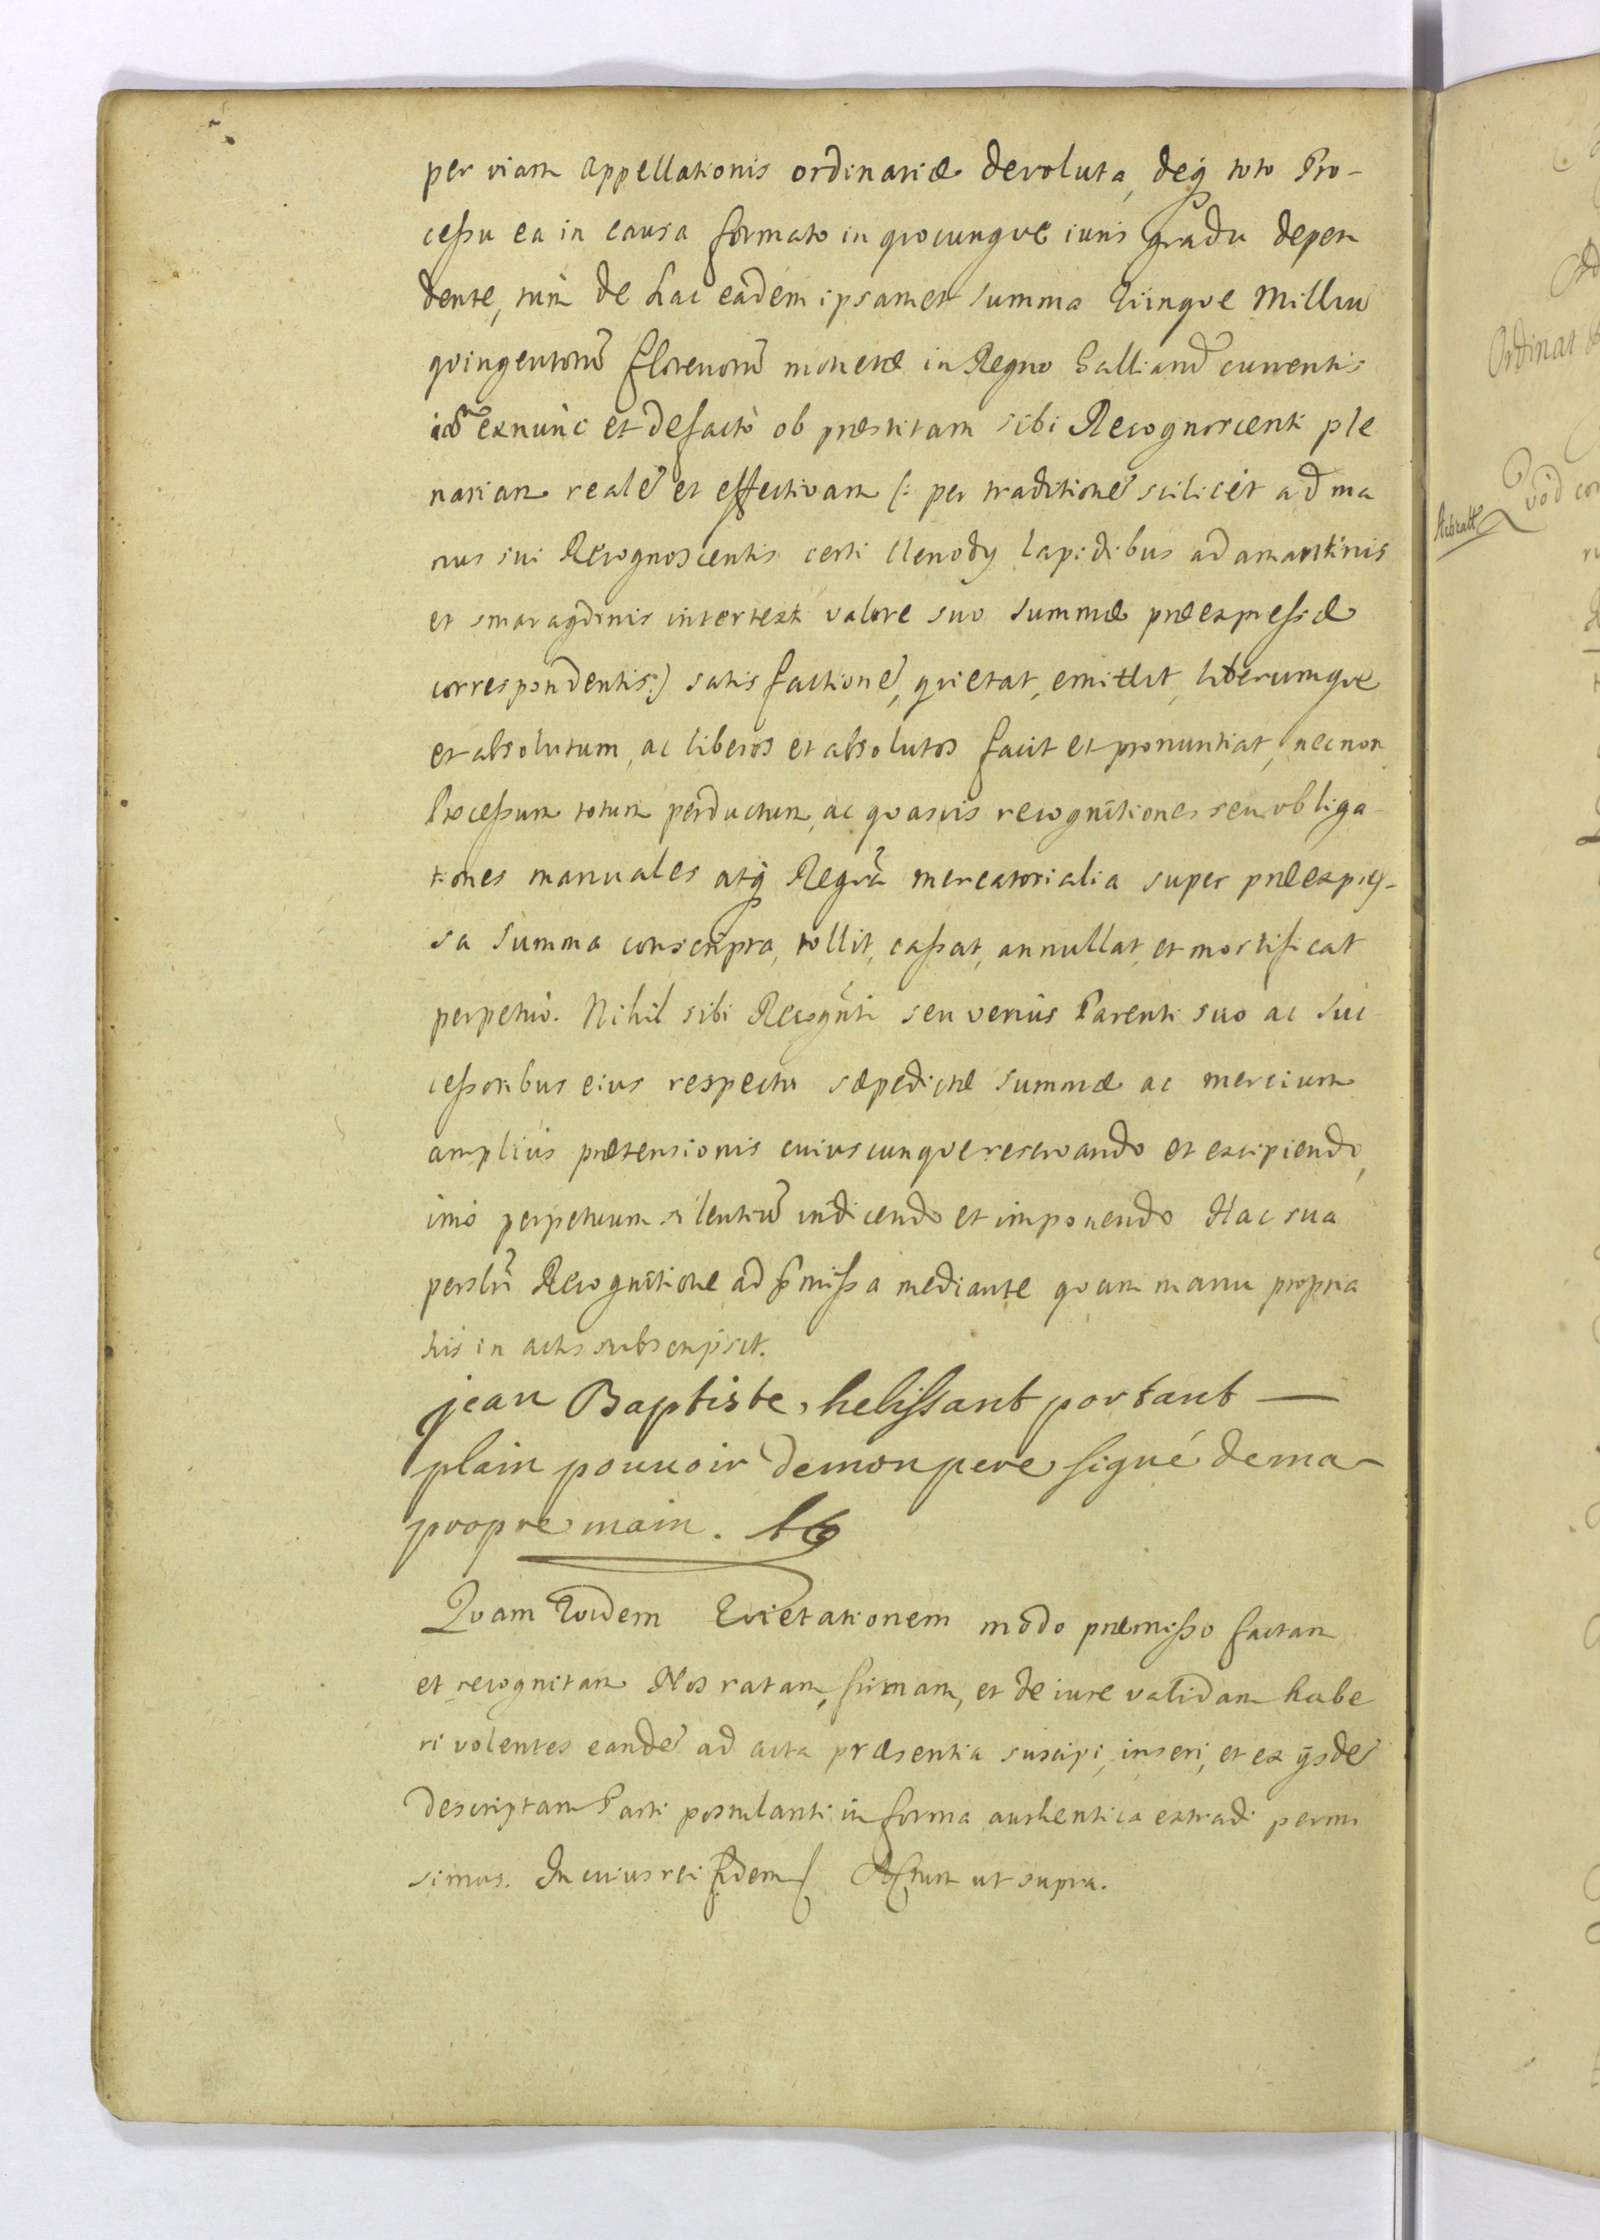 per viam appellationis ordinariæ devoluta, deq3 toto Pro-
cessu ea in causa formato in quocunque iuris gradu depen
dente, tum de hac eadem ipsamet summa Quinque Milliu
quingentoru florenoru monetæ in Regno Galliaru currentis
exnunc et defacto ob præstitam sibi Recognoscenti ple
nariam reale et effectivam (: per traditione scilicet ad ma
nus sui Recognoscentis certi clenodÿ lapidibus adamantinis
et smaragdinis intertexti valore suo summæ præexpressæ
correspondentis:) satisfactione, quietat, emittit, liberumque
et absolutum, ac liberos et absolutos facit et pronuntiat, necnon
Processum totum perductum, ac quasvis recognitiones seu obliga-
tiones manuales atq3 Regra mercatorialia super præexpres-
sa summa conscripta, tollit, cassat, annullat, et mortificat
perpetuo. Nihil sibi Recognti seu verius Parenti suo ac suc
cessoribus eius respectu sæpedictæ summæ ac mercium
amplius prætensionis cuiuscunque reservando et excipiendo,
imo perpetuum silentiu indicendo et imponendo Hac sua
perslri Recognitione ad pmissa mediante quam manu propria
his in actis subscripsit.
jean Baptiste, helissant portant —
plain pouuoir demon pere signé dema
propre main.
Quam Quidem Quietationem modo præmisso factam
et recognitam Nos ratam, firmam, et de iure validam habe
ri volentes eande ad acta præsentia suscipi, inseri, et ex ÿsde
descriptam Parti postulanti in forma authentica extradi permi
simus. In cuius rei fidem Actum ut supra.
Ordinat